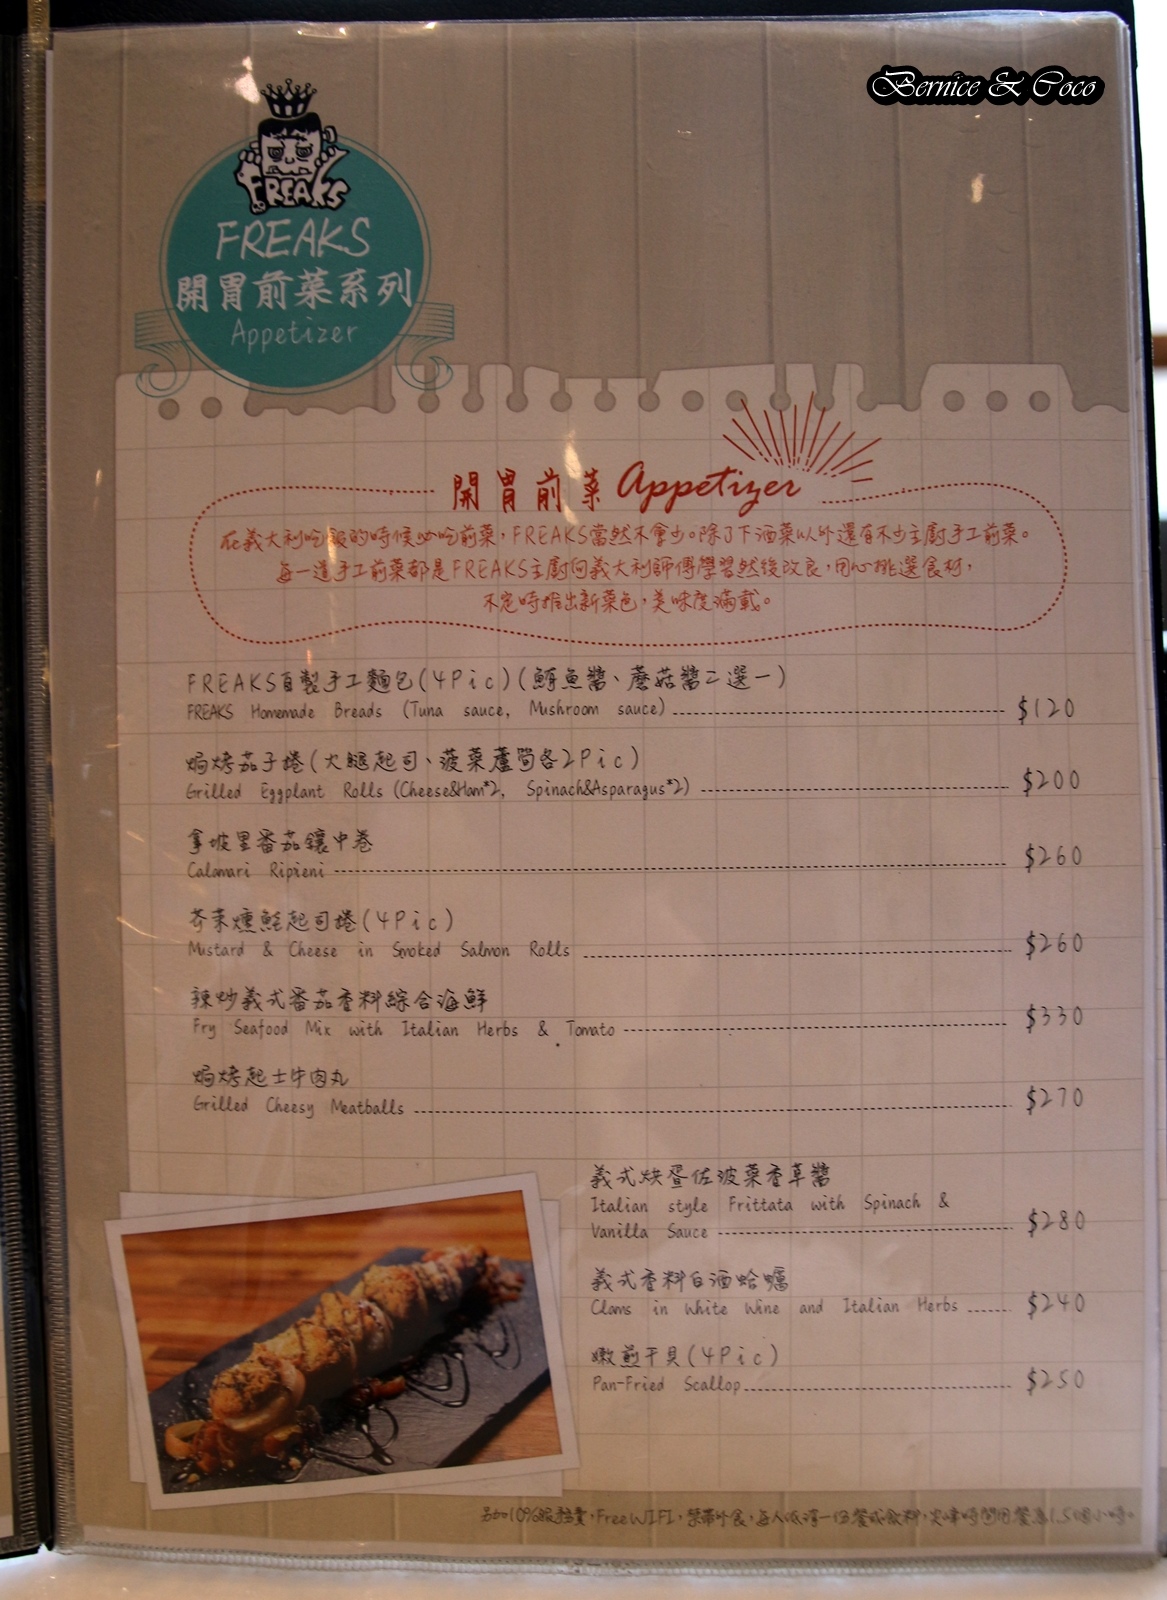 Bernice & Coco
FREAKS
FREAKS
開胃前菜系列
Appetizer
開胃前菜 Appetizer
在義大利吃飯的時候必吃前菜，FREAKS當然不會少。除了下酒菜以外還有不少主廚手工前菜。
每一道手工前菜都是FREAKS主廚向義大利師傅學習然後改良，用心挑選食材，
不定時推出新菜色，美味度滿載。
FREAKS自製手工麵包(4Pic)(鮪魚醬、蘑菇醬二選一)
FREAKS Homemade Breads (Tuna sauce, Mushroom sauce) $120
焗烤茄子捲(火腿起司、菠菜蘆筍各2Pic)
Grilled Eggplant Rolls (Cheese&Ham*2, Spinach&Asparagus*2) $200
拿坡里番茄鑲中卷
Calamari Ripieni $260
芥茉燻鮭起司捲(4Pic)
Mustard & Cheese in Smoked Salmon Rolls $260
辣炒義式番茄香料綜合海鮮
Fry Seafood Mix with Italian Herbs & Tomato $330
焗烤起士牛肉丸
Grilled Cheesy Meatballs $270
義式烘蛋佐波菜香草醬
Italian style Frittata with Spinach &
Vanilla Sauce $280
義式香料白酒蛤蠣
Clams in White Wine and Italian Herbs $240
嫩煎干貝(4Pic)
Pan-Fried Scallop $250
另加10%服務費，Free WIFI，禁帶外食，每人低消一份餐或飲料，尖峰時間用餐為1.5個小時。